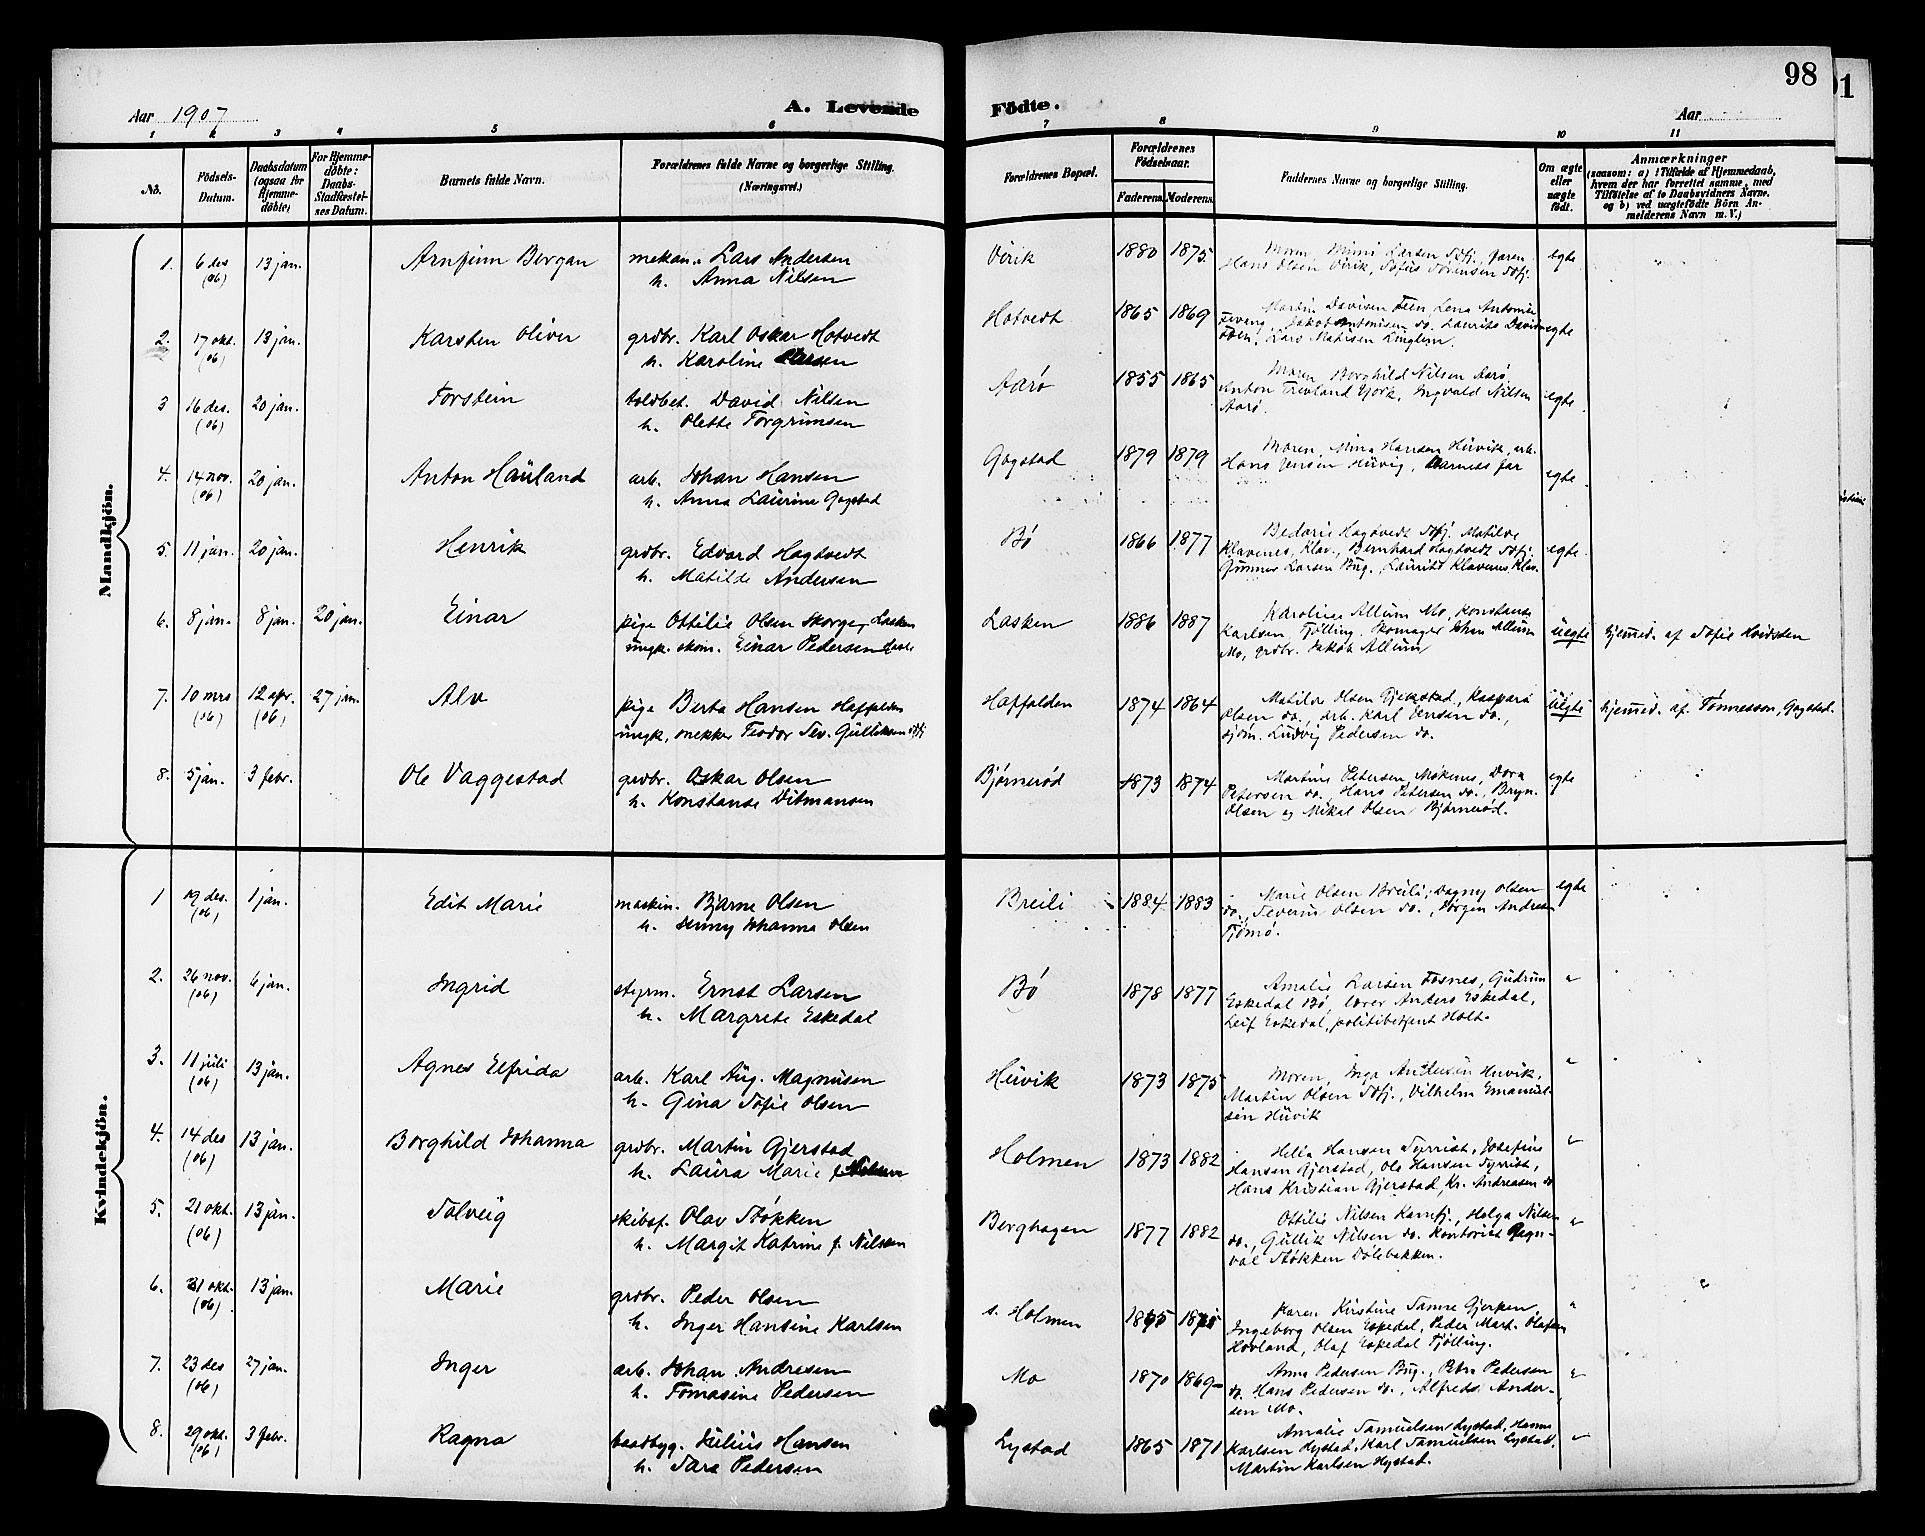 98
91
Aar 1907
A. Levende
Fødte.
Aar
1 2 3 4 5 6 7 8 9 10 11
No.
Fødsels-
Datum.
Daabsdatum
(ogsaa for
Hjemme-
døbte)
For Hjemme-
døbte:
Daabs-
Stadfæstel-
ses Datum.
Barnets fulde Navn.
Forældrenes fulde Navne og borgerlige Stilling.
(Næringsvei.)
Forældrenes Bopæl.
Forældrenes
Fødselsaar.
Faderens.
Moderens.
Faddernes Navne og borgerlige Stilling.
Om ægte
eller
uægte
født.
Anmærkninger
(saasom: a) i Tilfælde af Hjemmedaab,
hvem der har forrettet samme, med
Tilføielse af to Daabsvidners Navne,
og b) ved uægtefødte Børn An-
melderens Navn m. V.)
Mandkjøn.
1. 6 des 13 jan. Arnfinn Bergan mekan. Lars Andersen Virik 1880 1875 Moren, Mimi Larsen Sdfj., faren, egte
(06) h. Anna Nilsen Hans Olsen Virik, Sofus Sørensen Sdfj.
2. 17 okt. 13 jan. Karsten Oliver grdbr. Karl Oskar Hotvedt Hotvedt 1865 1869 Martin Davisen Feen, Lena Antonie egte
(06) h. Karoline Larsen Feen, Lars Matisen Linglem.
3 16 des. 20 jan. Torstein toldbet. David Nilsen Aarø 1855 1865 Moren, Borghild Nilsen Aarø, egte
(06) h. Olette Torgrimsen Anton Trevland York, Ingvald Nilsen
Aarø.
4. 14 nov. 20 jan. Anton Hauland arb. Johan Hansen Gogstad 1879 1879 Moren, Mina Hansen Huvik, arb. egte
(06) h. Anna Laurine Gogstad Hans Jensen Huvig, barnets far
5. 11 jan. 20 jan. Henrik grdbr. Edvard Hagtvedt Bø 1866 1877 Hagtvedt Sdfj. Matilde egte
h. Matilde Andersen Klavenes, Klav., Bernhard Hagtvedt Sdfj.
Gunnar Larsen Bug., Laurits Klavenes Klav.
6. 8 jan. 8 jan. 20 jan. Einar pige Ottilie Olsen Skorge, Lasken Lasken 1886 1887 Karoline Allum Mo, Konstanse uegte hjemmed. af Sofie
ungk. skom. Einar Pedersen Karlsen, Tjølling, Skomager Johan Allum
Mo, grdbr. Jakob Allum
7. 10 mrs 12 apr. 27 jan. Alv pige Berta Hansen Haffalden Haffalden 1874 1864 Matilde Olsen Gjekstad, Kaspara uegte hjemmed. af Tønnesson, Gogstad.
(06) (06) ungk. snekker Teodor Sev. Gulliksen Sdfj Olsen do., arb. Karl Jensen do.,
sjøm. Ludvig Pedersen do.
8. 5 jan. 3 febr. Ole Vaggestad grdbr. Oskar Olsen Bjørnerød 1873 1874 Martine Petersen, Møkenes, Dora egte
h. Konstanse Ditmansen Petersen do. Hans Petersen do., Bryn.
Olsen og Mikal Olsen Bjørnerød.
Kvindekjøn.
1 19 des. 1 jan. Edit Marie maskin. Bjarne Olsen Breili 1884 1883 Marie Olsen Breili, Dagny Olsen egte
(06) h. Jenny Johanna Olsen do., Severin Olsen do., Jørgen Andresen
Tjømø.
2. 26 nov. 6 jan. Ingrid styrm. Ernst Larsen Bø 1878 1877 Amalie Larsen Fosnes, Gudrun "
(06) h. Margrete Eskedal Eskedal Bø, lærer Anders Eskedal,
Leif Eskedal, politibetjent Holt.
3. 11 juli 13 jan. Agnes Elfrida arb. Karl Aug. Magnusen Huvik 1873 1875 Moren, Inga Huvik, "
(06) h. Gina Sofie Olsen Martin Olsen Sdfj., Vilhelm Emanuel-
sen Huvik
4. 14 des 13 jan. Borghild Johanna grdbr. Martin Gjerstad Holmen 1873 1882 Hella Hansen Syrrist, Josefine "
(06) h. Laura Marie f. Nilsen Hansen Gjerstad, Ole Hansen Syrrist,
Hans Kristian Gjerstad, Kr. Andreasen do
5. 21 okt. 13 jan. Solveig skibsf. Olav Støkken Berghagen 1877 1882 Ottilie Nilsen Kamfj., Helga Nilsen "
(06) h. Margit Katrine f. Nilsen do., Gullik Nilsen do. Kontorist Ragn-
val Støkken Dølebakken.
6. 31 okt. 13 jan. Marie grdbr. Peder Olsen s. Holmen Karen Kirstine Gjerken, "
(06) h. Inger Hansine Karlsen Ingeborg Olsen Eskedal, Peder Mart. Olafsen
Hovland, Olaf Eskedal Tjølling.
7. 23 des 27 jan. Inger arb. Johan Andresen Mo 1870 1869 Anna Pedersen Bug., Petra Pedersen "
(06) h. Tomasine Pedersen do. Hans Pedersen do., Alfred Ander-
sen Mo.
8. 29 okt. 3 febr. Ragna baadbyg. Julius Hansen Lystad 1865 1871 Amalie Samuelsen Lystad, Hanna "
(06) h. Sara Pedersen Karlsen Lystad, Karl Samuelsen Lystad,
Martin Karlsen Hystad.